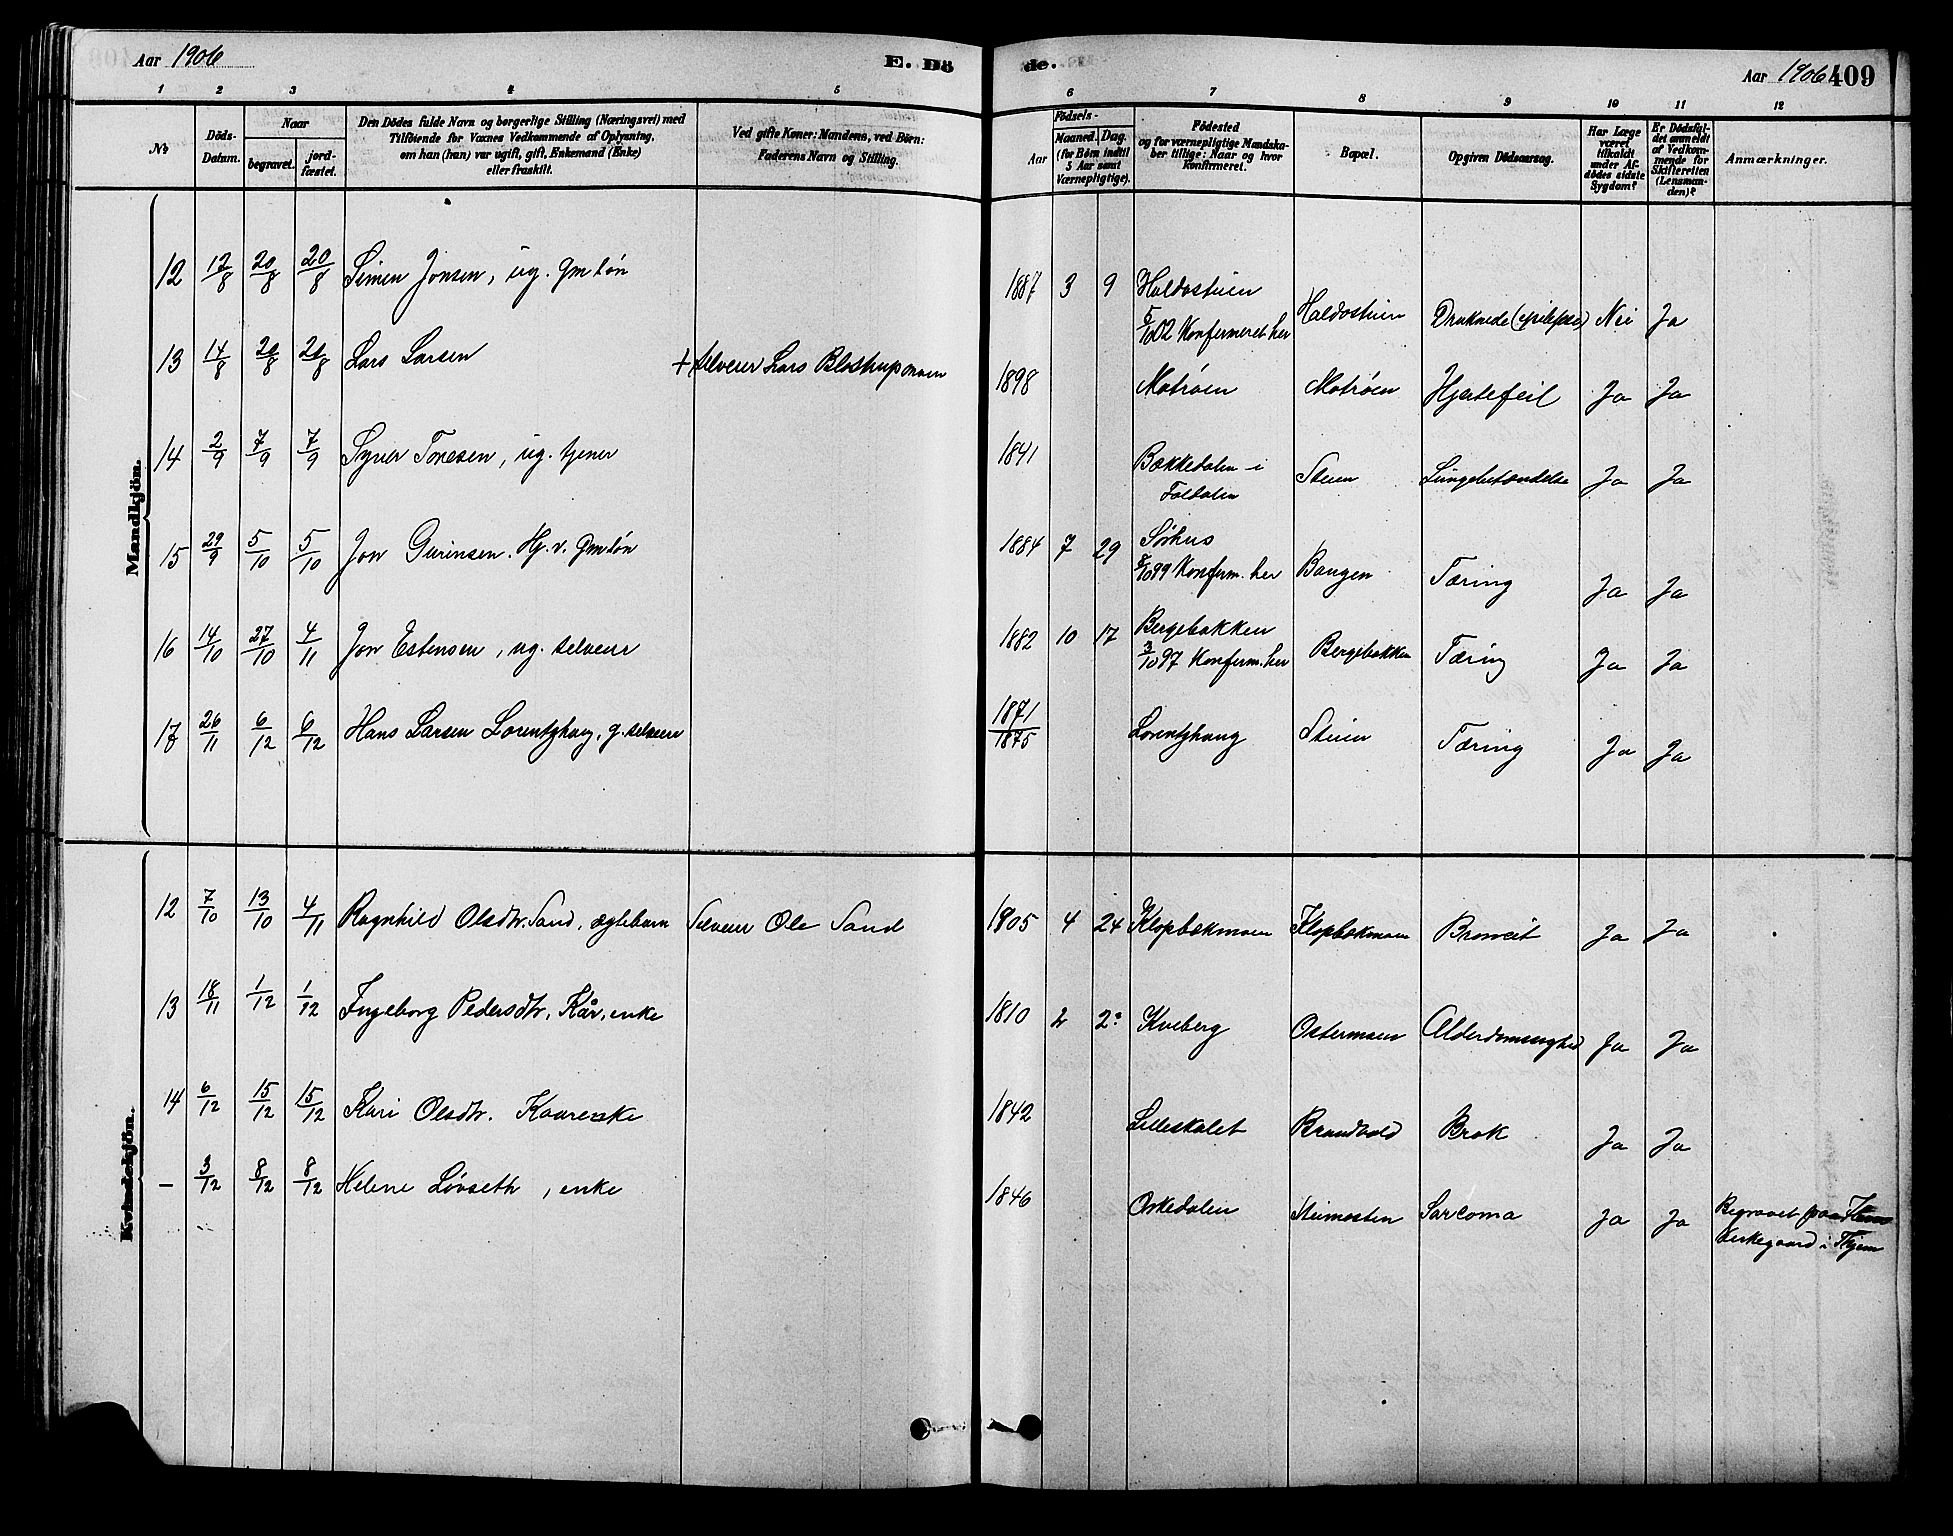 Aar 1906
E. Dö
de.
Aar 1906
409
1 2 3 4 5 6 7 8 9 10 11 12
No
Döds-Datum.
Naar
begravet.
jord-fæstet.
Den Dödes fulde Navn og borgerlige Stilling (Næringsvei) med
Tilföiende for Voxnes Vedkommende af Oplysning,
om han (hun) var ugift, gift, Enkemand (Enke)
eller fraskilt.
Ved gifte Koner: Mandens, ved Börn:
Faderens Navn og Stilling.
Födsels-
Aar
Maaned. Dag.
(for Börn indtil
5 Aar samt
Værnepligtige).
Födested
og for værnepligtige Mandska-
ber tillige: Naar og hvor
konfirmeret.
Bopæl.
Opgiven Dödsaarsag.
Har Læge
været
tilkaldt
under Af-
dødes sidste
Sygdom?
Er Dödsfal-
det anmeldt
af Vedkom-
mende for
Skifteretten
(Lensman-
den)?
Anmærkninger.
Mandkjön.
12 12/8 20/8 20/8 Simen Jonsen, ug. gm søn 1887 3 9 Haldostuen
5/10 02 Konfirmeret her Haldostuen Druknede (epilepsi) Nei Ja
13 14/8 20/8 20/8 Lars Larsen + selveier Lars Blostrupmoen 1898 Motrøen Motrøen Hjertefeil Ja Ja
14 2/9 7/9 7/9 Syver Toresen, ug. tjener 1841 Bækkedalen i
Foldalen Steien Lungebetændelse Ja Ja
15 29/9 5/10 5/10 Jon Gurinsen. Hj. v. gm søn 1884 7 29 Sørhus
8/10 99 Konfirm. her Bangen Tæring Ja Ja
16 14/10 27/10 4/11 Jon Estensen, ug. selveier 1882 10 17 Bergebakken
3/10 97 Konfirm. her Bergebakken Tæring Ja Ja
17 26/11 6/12 6/12 Hans Larsen Lorentzhaug, g. selveier 1871/1875 Lorentzhaug Steien Tæring Ja Ja
Kvindekjön.
12 7/10 13/10 4/11 Ragnhild Olsdtr. Sand, ægtebarn Selveier Ole Sand 1905 4 24 Klopbækmoen Klopbækmoen Bronceit Ja Ja
13 18/11 1/12 1/12 Ingeborg Pedersdtr. Kår, enke 1810 2 Kveberg Ostermoen Alderdomssvaghed Ja Ja
14 6/12 15/12 15/12 Kari Olsdtr. Kaarenke 1842 Lilleskalet Brandvold Brok Ja Ja
– 3/12 8/12 8/12 Helene Løvseth, enke 1846 Orkedalen Steimosten Sarcoma Ja Ja Begravet paa
kirkegaard i